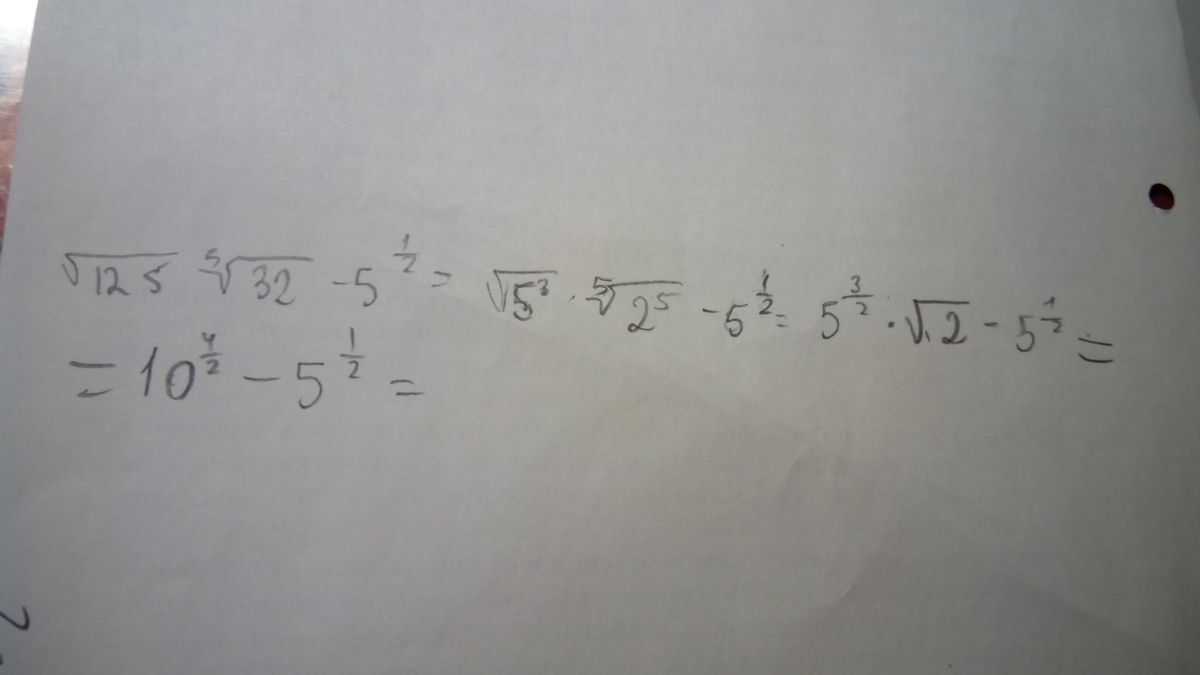 √125 ⁵√32 - 5^(1/2) = √5³ · ⁵√2⁵ - 5^(1/2) = 5^(3/2) · √2 - 5^(1/2) =
= 10^(4/2) - 5^(1/2) =